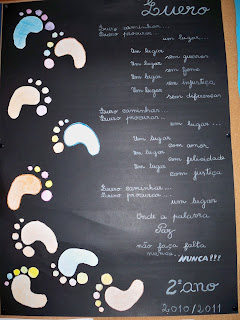 Quero
Quero caminhar...
Quero procurar...
um lugar...
Um lugar sem guerras
Um lugar sem fome
Um lugar sem injustiça
Um lugar sem diferenças
Quero caminhar...
Quero procurar...
um lugar ...
Um lugar com amor
Um lugar com felicidade
Um lugar com justiça
Quero caminhar...
Quero procurar...
um lugar
Onde a palavra
Paz
não faça falta
nunca... NUNCA!!!
2º ano
2010/2011